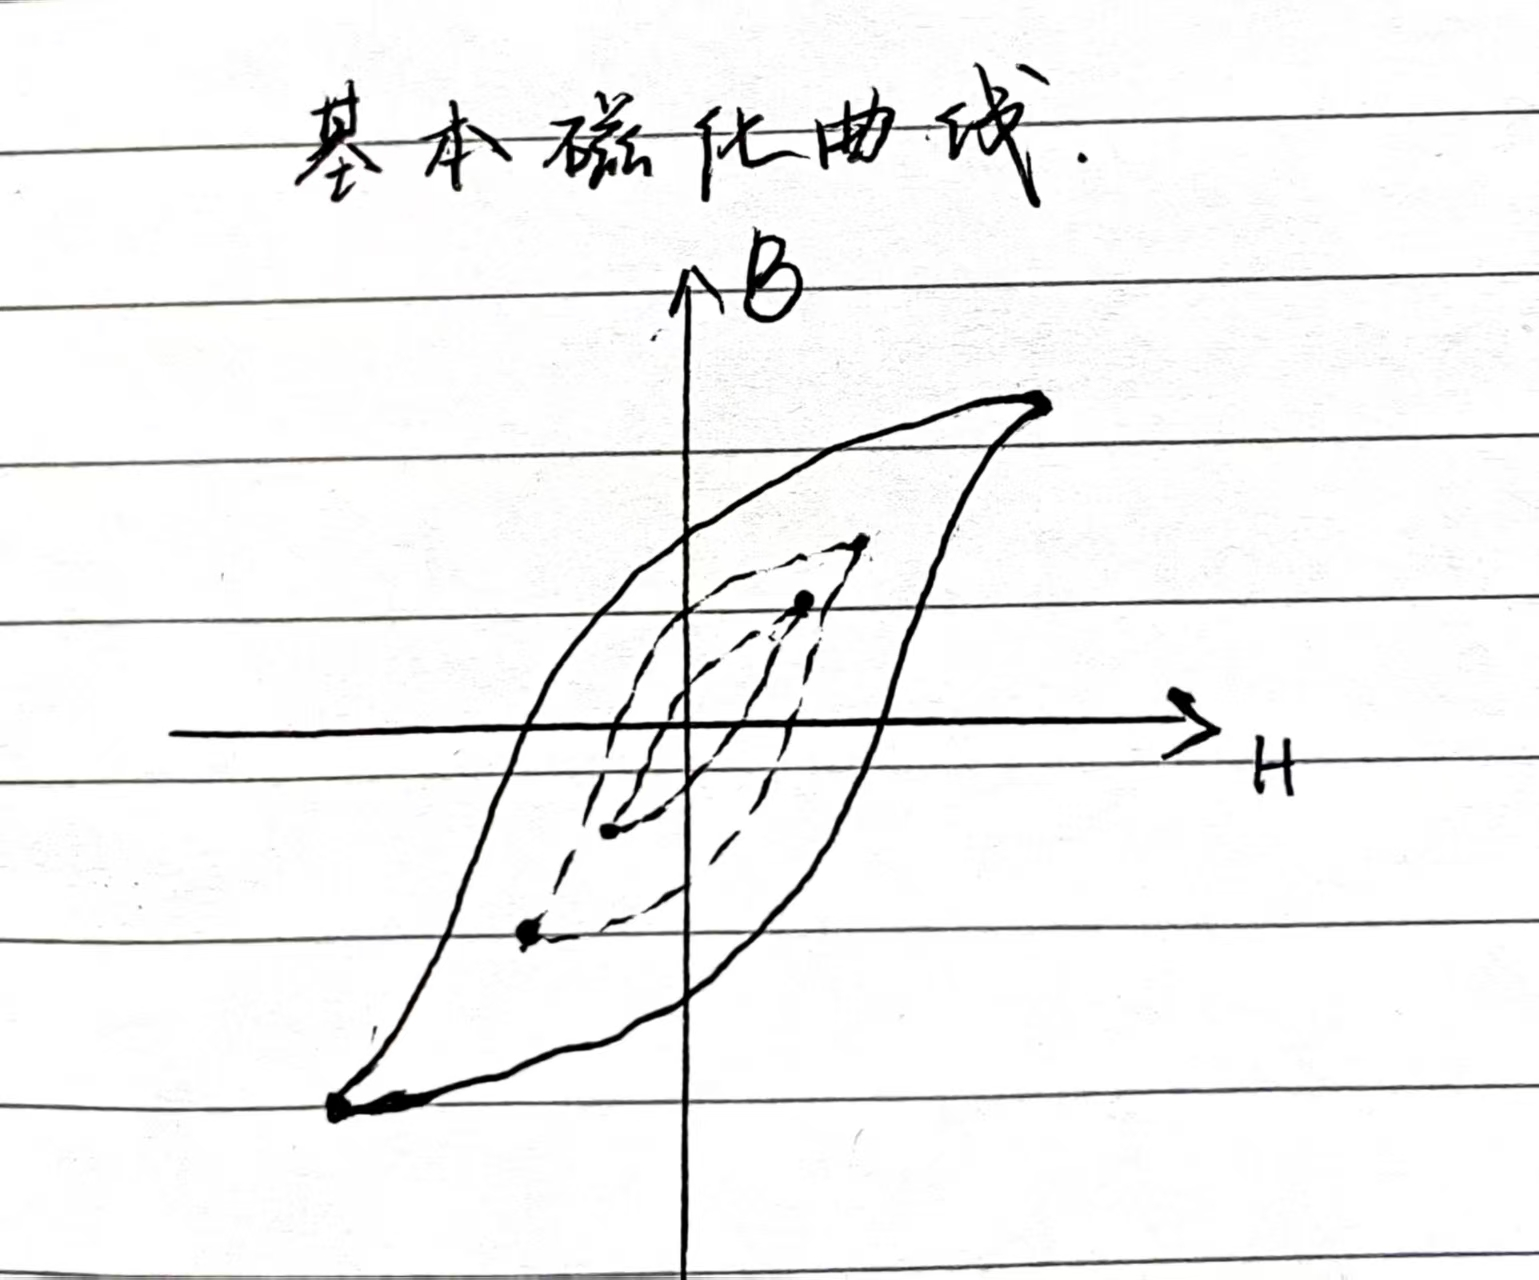 基本磁化曲线.
B
H